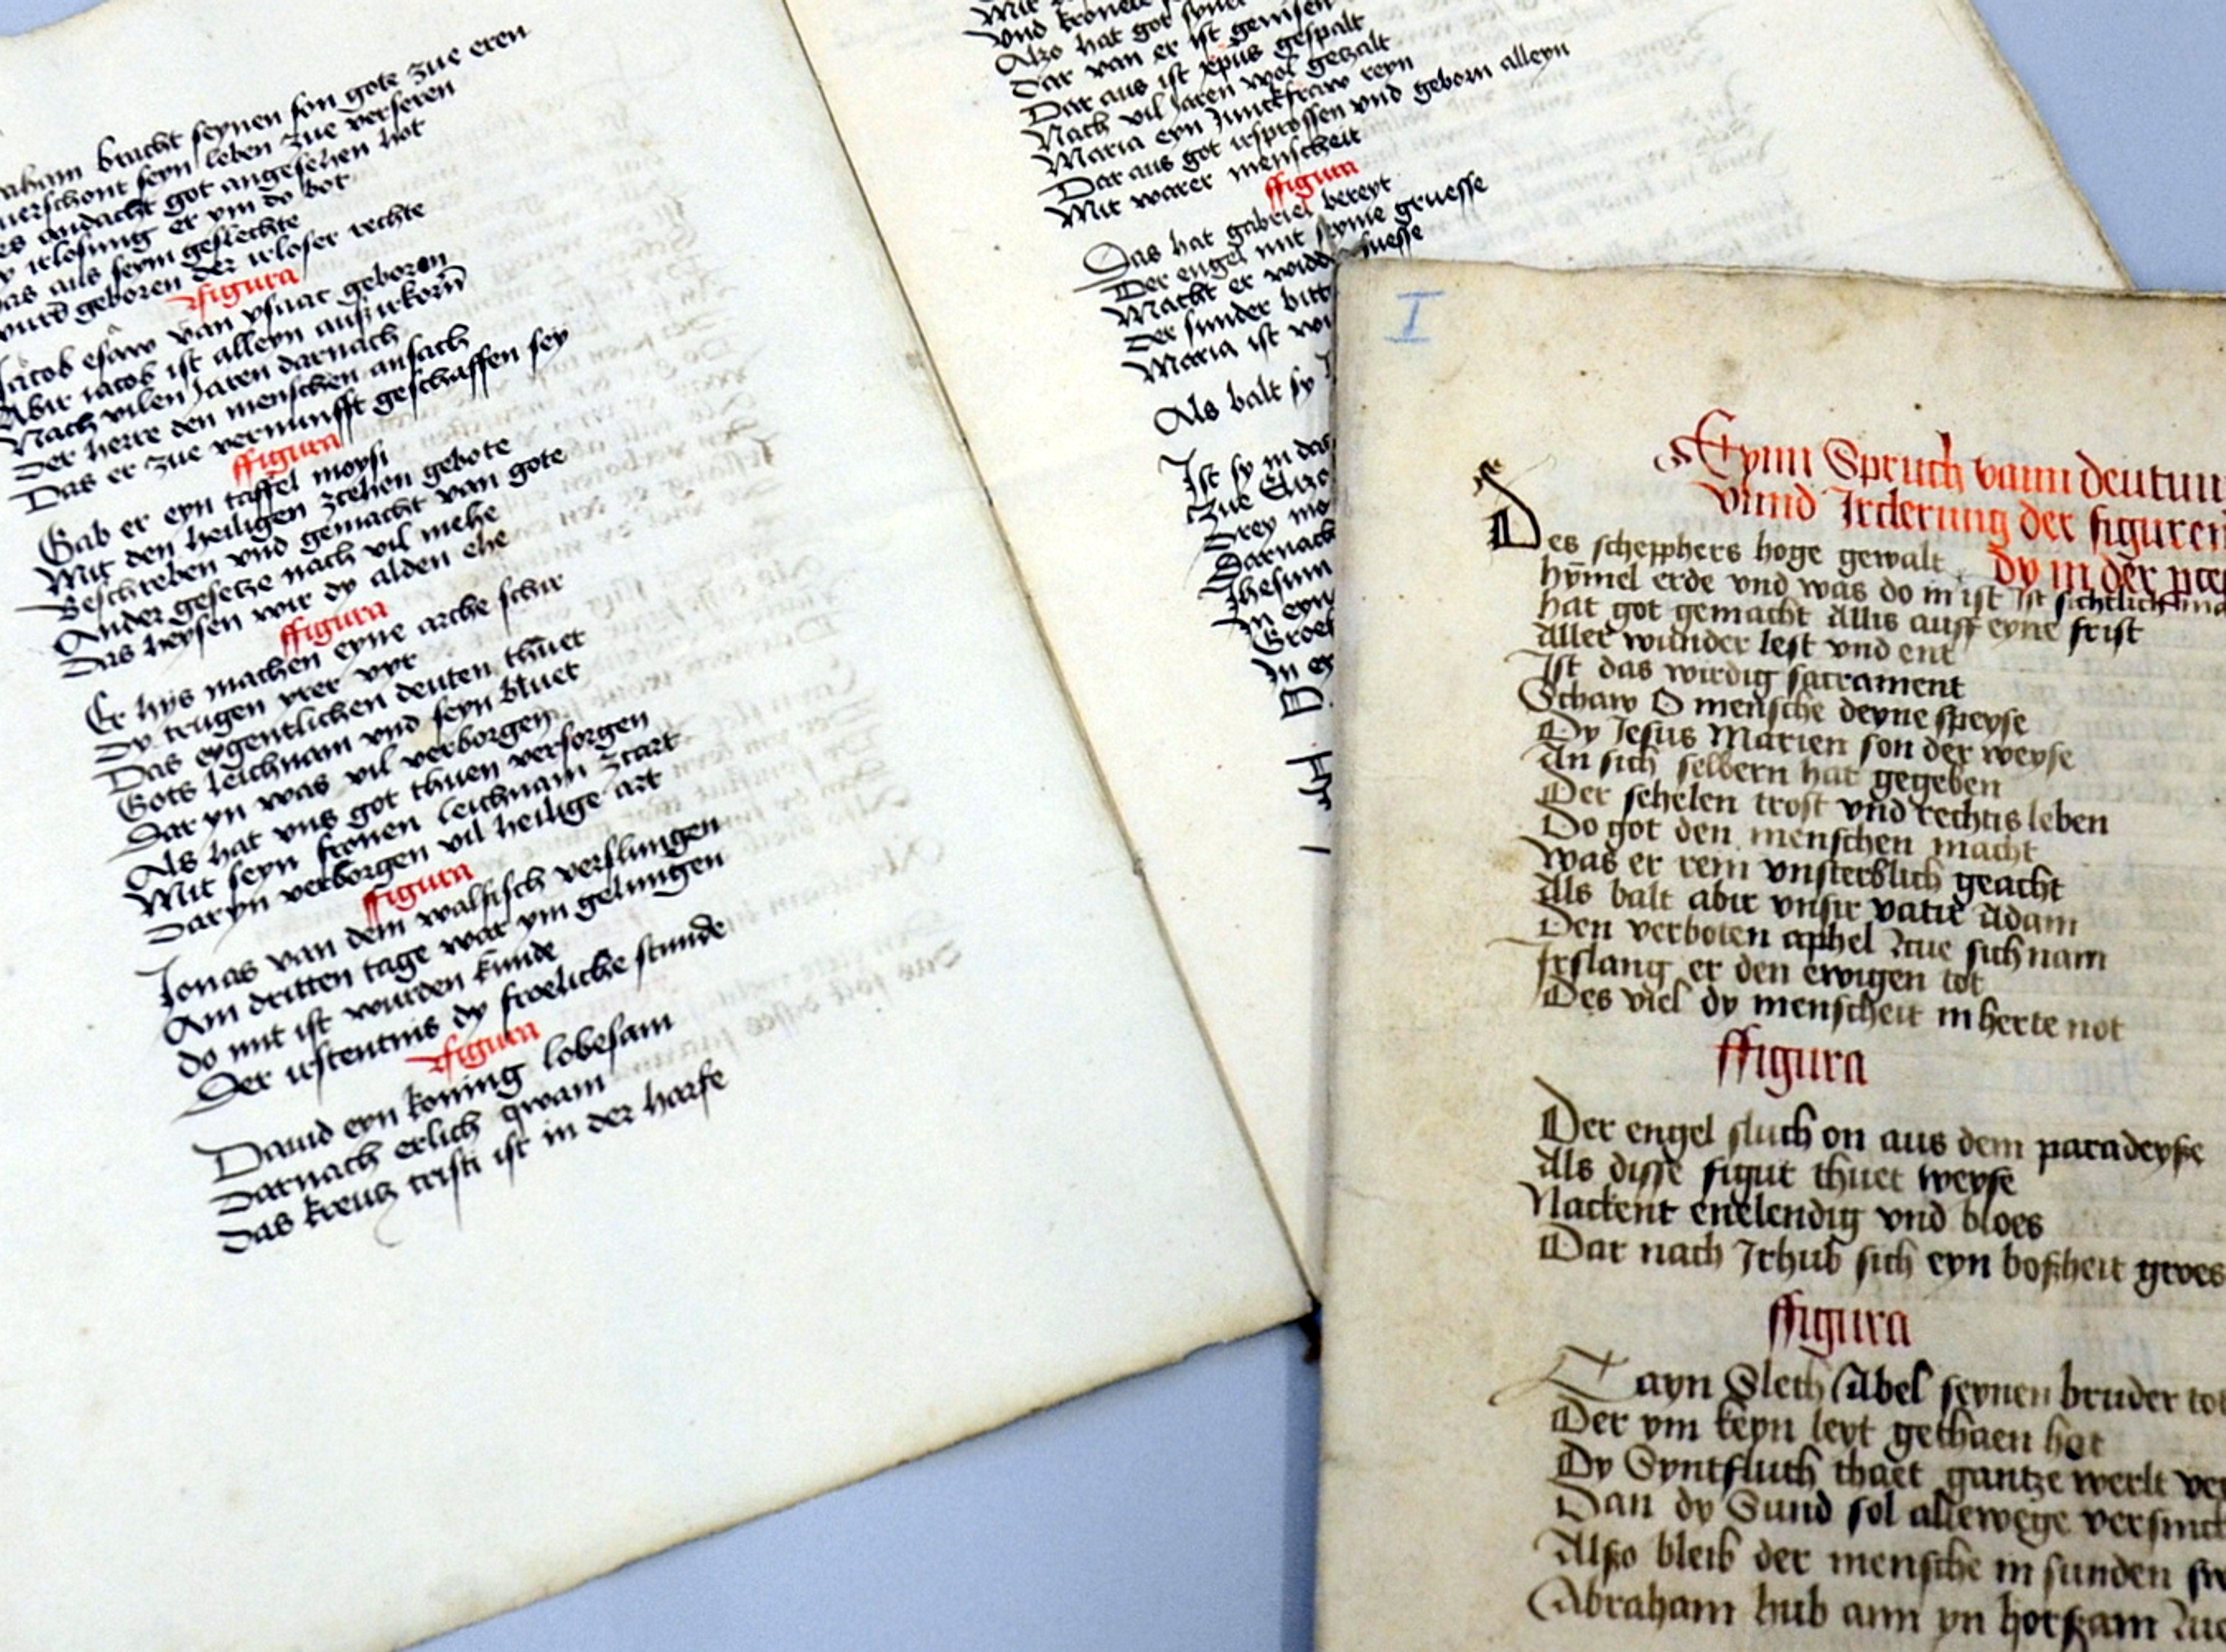 bracht seynen son gote zue eren
verschont seyn leben zue verseren
andacht got angesehen hot
irlosung er ym do bot
aus seym geslechte
wurd geboren der irloser rechte
ffigura
Jacob esaw van ysaac geboren
Abir iacob ist alleyn ausirkorn
Nach vilen Jaren darnach
Der herre den menschen ansach
Das er zue vernunfft geschaffen sey
ffigura
Gab er eyn taffel moysi
Mit den heiligen zcehen gebote
Beschreben vnd gemacht van gote
Ander gesetze nach vil mehe
Das heysen wir dy alden ehe
ffigura
Er hys machen eyne arche schir
Dy trugen yrer vyr
Das eygentlichen deuten thuet
Gots leichnam vnd seyn bluet
Dar yn was vil verborgen
Als hat vns got thuen versorgen
Mit seyn fronen leichnam zcart
Dar yn verborgen vil heilige art
ffigura
Jonas van dem walfisch verslungen
Am dritten tage war ym gelungen
do mit ist wurden kunde
Der irstentnis dy froeliche stunde
ffigura
Dauid eyn koning lobesam
Darnach erlich qwam
Das kreutz cristi ist in der harfe
Mit
vnd kronete
Alzo hat got syner
Dar van er ist gewisen
Dar aus ist xpus gespalt
Nach vil Jaren wol gezalt
Maria eyn Junckfraw reyn
Dar aus got irsprossen vnd geborn alleyn
Mit warer menscheit
ffigura
Das hat gabriel bereyt
Der engel mit syme gruesse
Macht er widd suesse
Der sunder bitt
Maria ist
Als balt sy
Ist sy in das
Zue
Drey
Darnach
Jhesum
In eyn
Groes
In
I
Eynn Spruch vann deutun
vnnd Irclerung der figuren
Des schepphers hoge gewalt dy in der
hymel erde vnd was do in ist Ist sichtlich
hat got gemacht Allis auff eyne frist
Aller wunder lest vnd ent
Ist das wirdig sacrament
Schaw O mensche deyne speyse
Dy Jesus Marien son der weyse
An sich selbern hat gegeben
Der sehelen trost vnd rechtis leben
Do got den menschen macht
Was er rein vnsterblich geacht
Als balt abir vnsir vatir Adam
Den verboten aphel zcue sich nam
Irslang er den ewigen tot
Des viel dy menscheit in herte not
ffigura
Der engel sluch on aus dem paradeyße
Als disse figur thuet weyse
Nackent enelendig vnd bloes
Dar nach Irhub sich eyn boßheit groes
ffigura
Cayn Sleth Abel seynen bruder tot
Der ym keyn leyt gethaen hot
Dy Syntfluth thaet gantze werlt
Dan dy Sund sol allewege
Alßo bleib der mensche in sunden
Abraham hub ann yn horßam